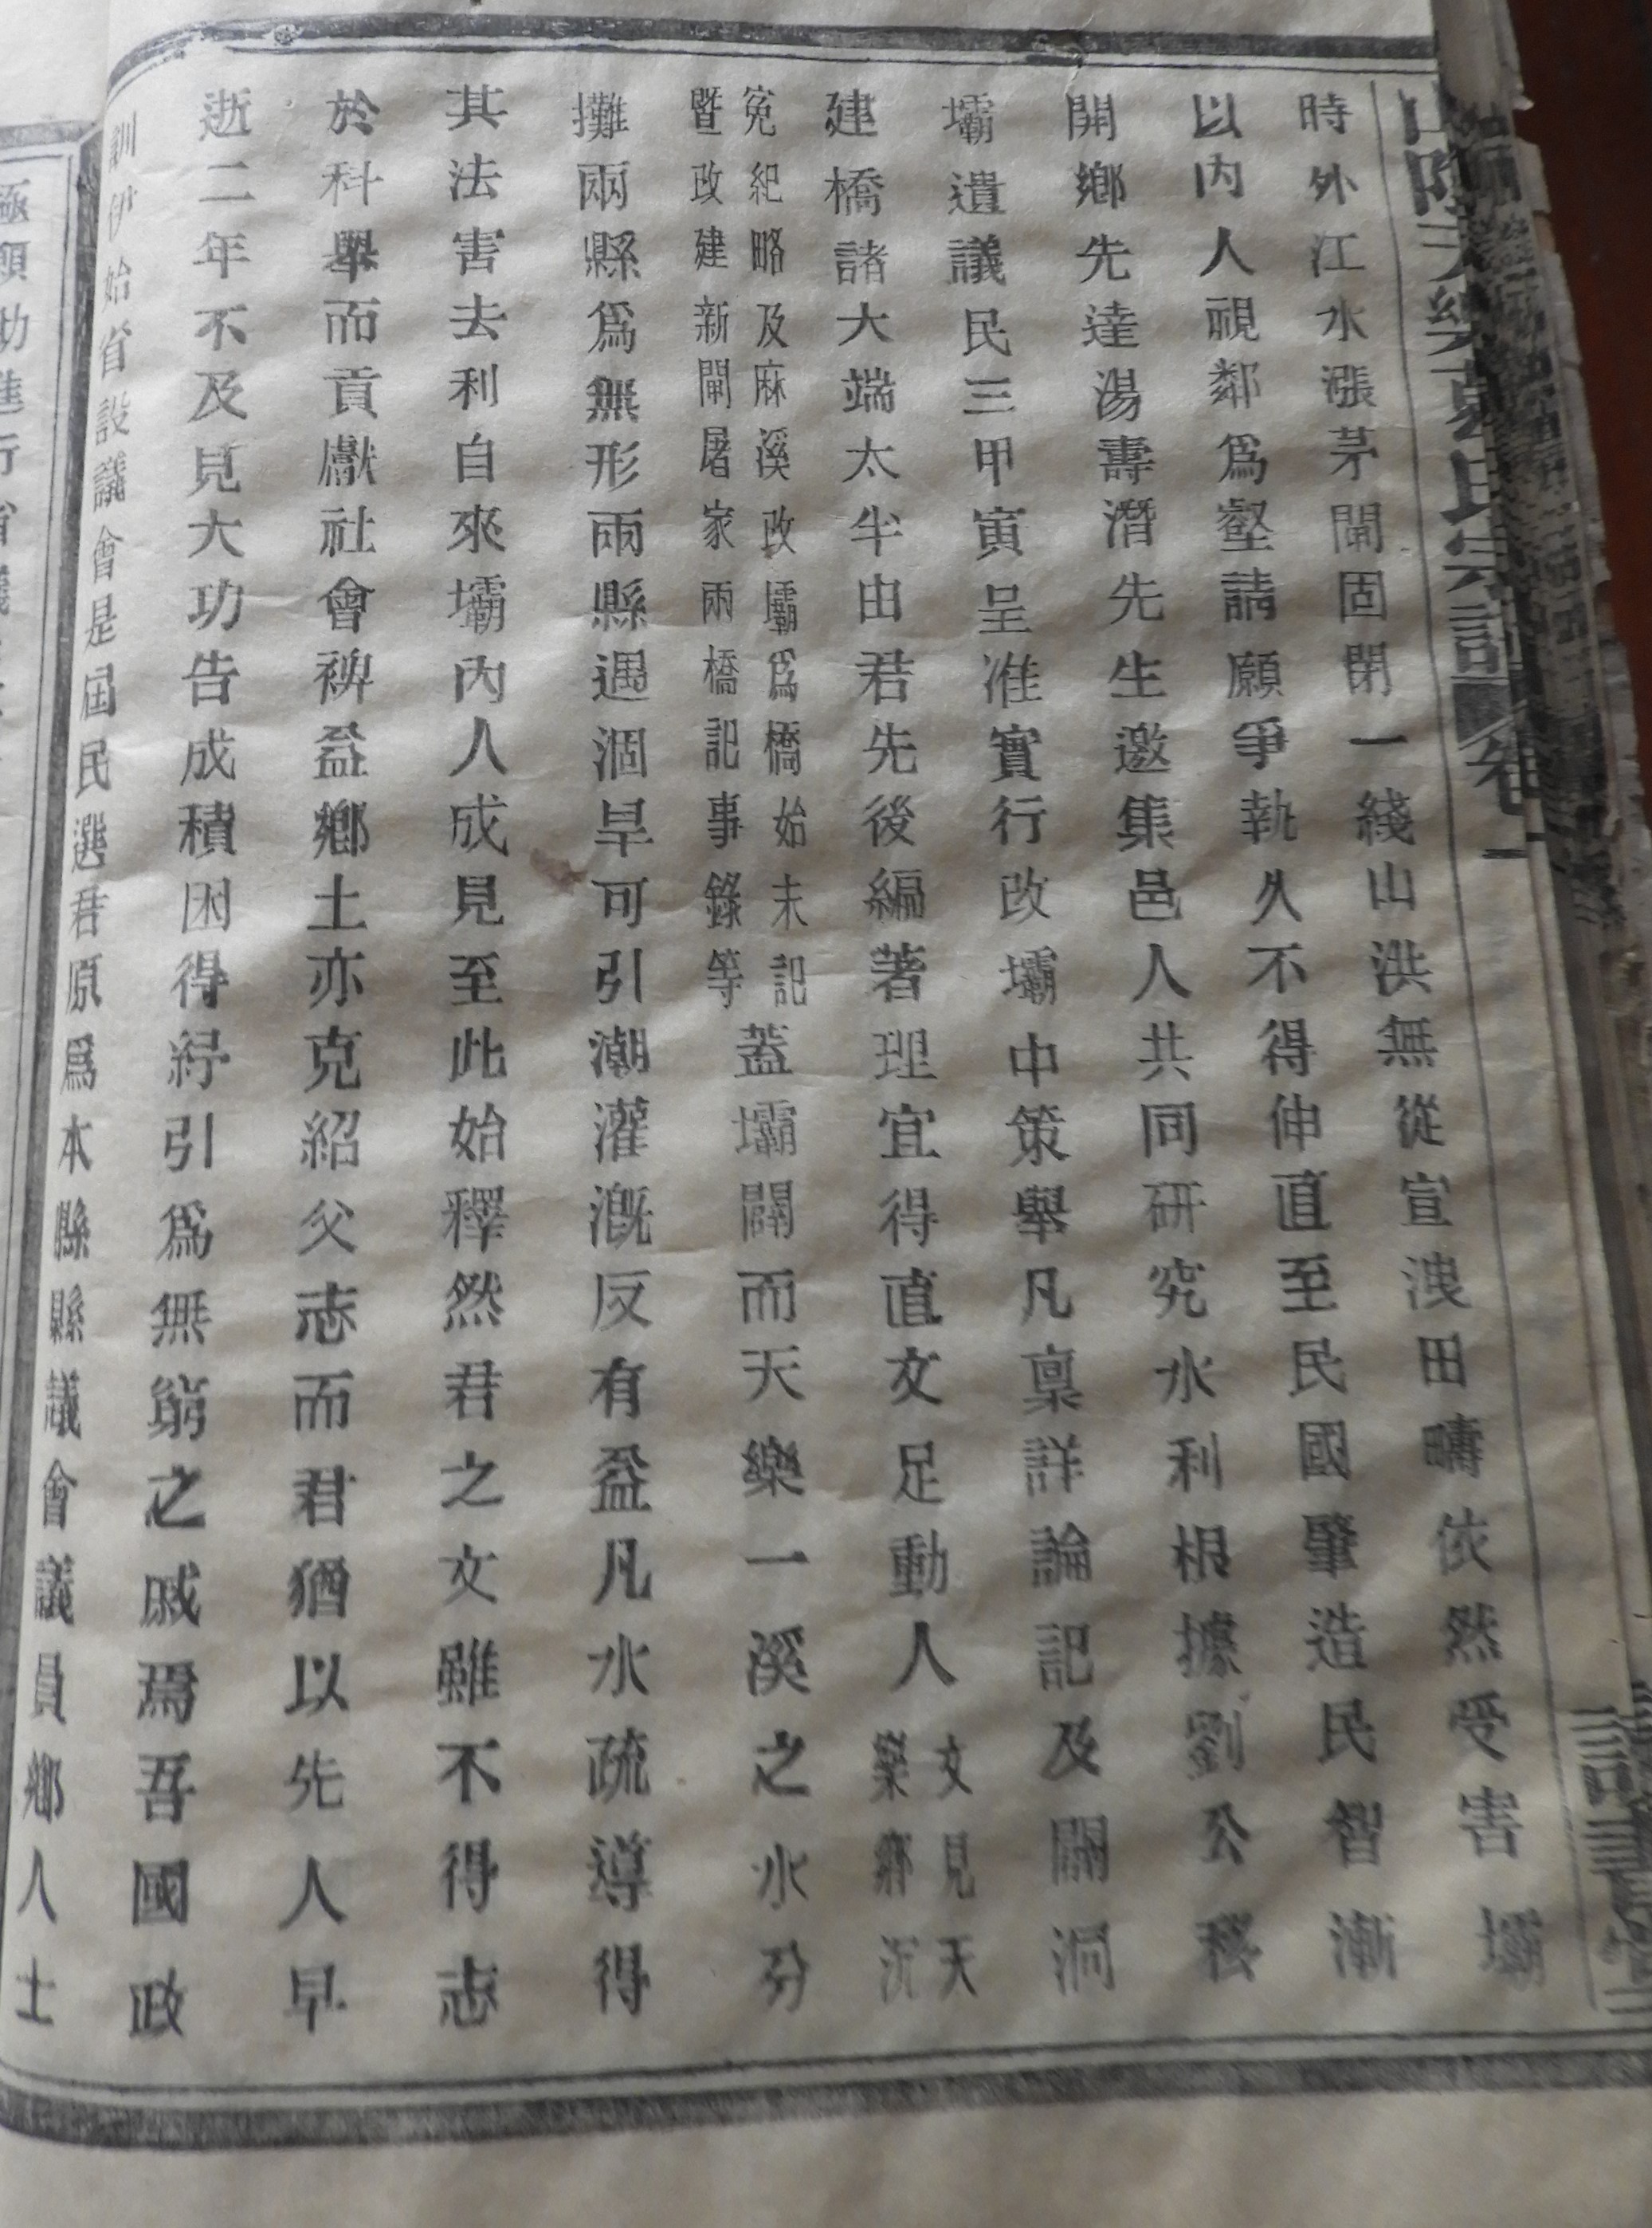 山陰天樂葛氏宗譜 卷一
時外江水漲茅閘固閉一綫山洪無從宣洩田疇依然受害壩
以内人視鄰爲壑請願爭執久不得伸直至民國肇造民智漸
開鄉先達湯壽潛先生邀集邑人共同研究水利根據劉公移
壩遺議民三甲寅呈准實行改壩中策舉凡稟詳論記及闢洞
建橋諸大端太半由君先後編著理宜得直文足動人
文見天
樂鄉沉
冤紀略及麻溪改壩爲橋始末記
暨改建新閘屠家兩橋記事錄等
蓋壩闢而天樂一溪之水分
攤兩縣爲無形兩縣遇涸旱可引潮灌漑反有益凡水疏導得
其法害去利自來壩内人成見至此始釋然君之文雖不得志
於科舉而貢獻社會裨益鄉土亦克紹父志而君猶以先人早
逝二年不及見大功告成積困得紓引爲無窮之戚焉吾國政
訓伊始省設議會是屆民選君原爲本縣縣議會議員鄉人士